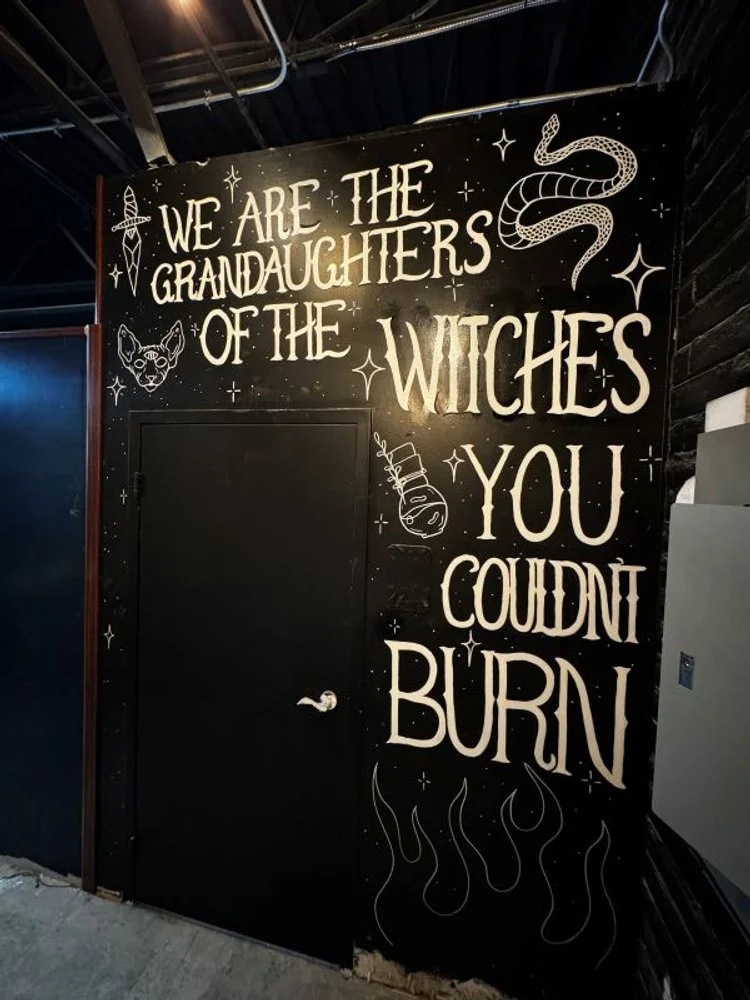 WE ARE THE
GRANDAUGHTERS
OF THE
WITCHES
YOU
COULDNT
BURN